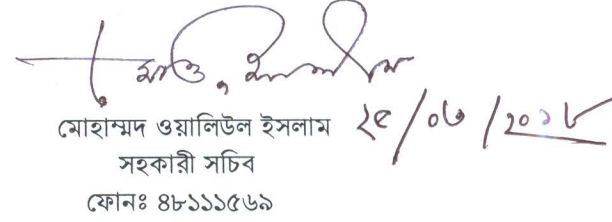 মোহাম্মদ ওয়ালিউল ইসলাম ২৫/০৬/২০১৮
সহকারী সচিব
ফোনঃ ৪৮১১১৫৬৯